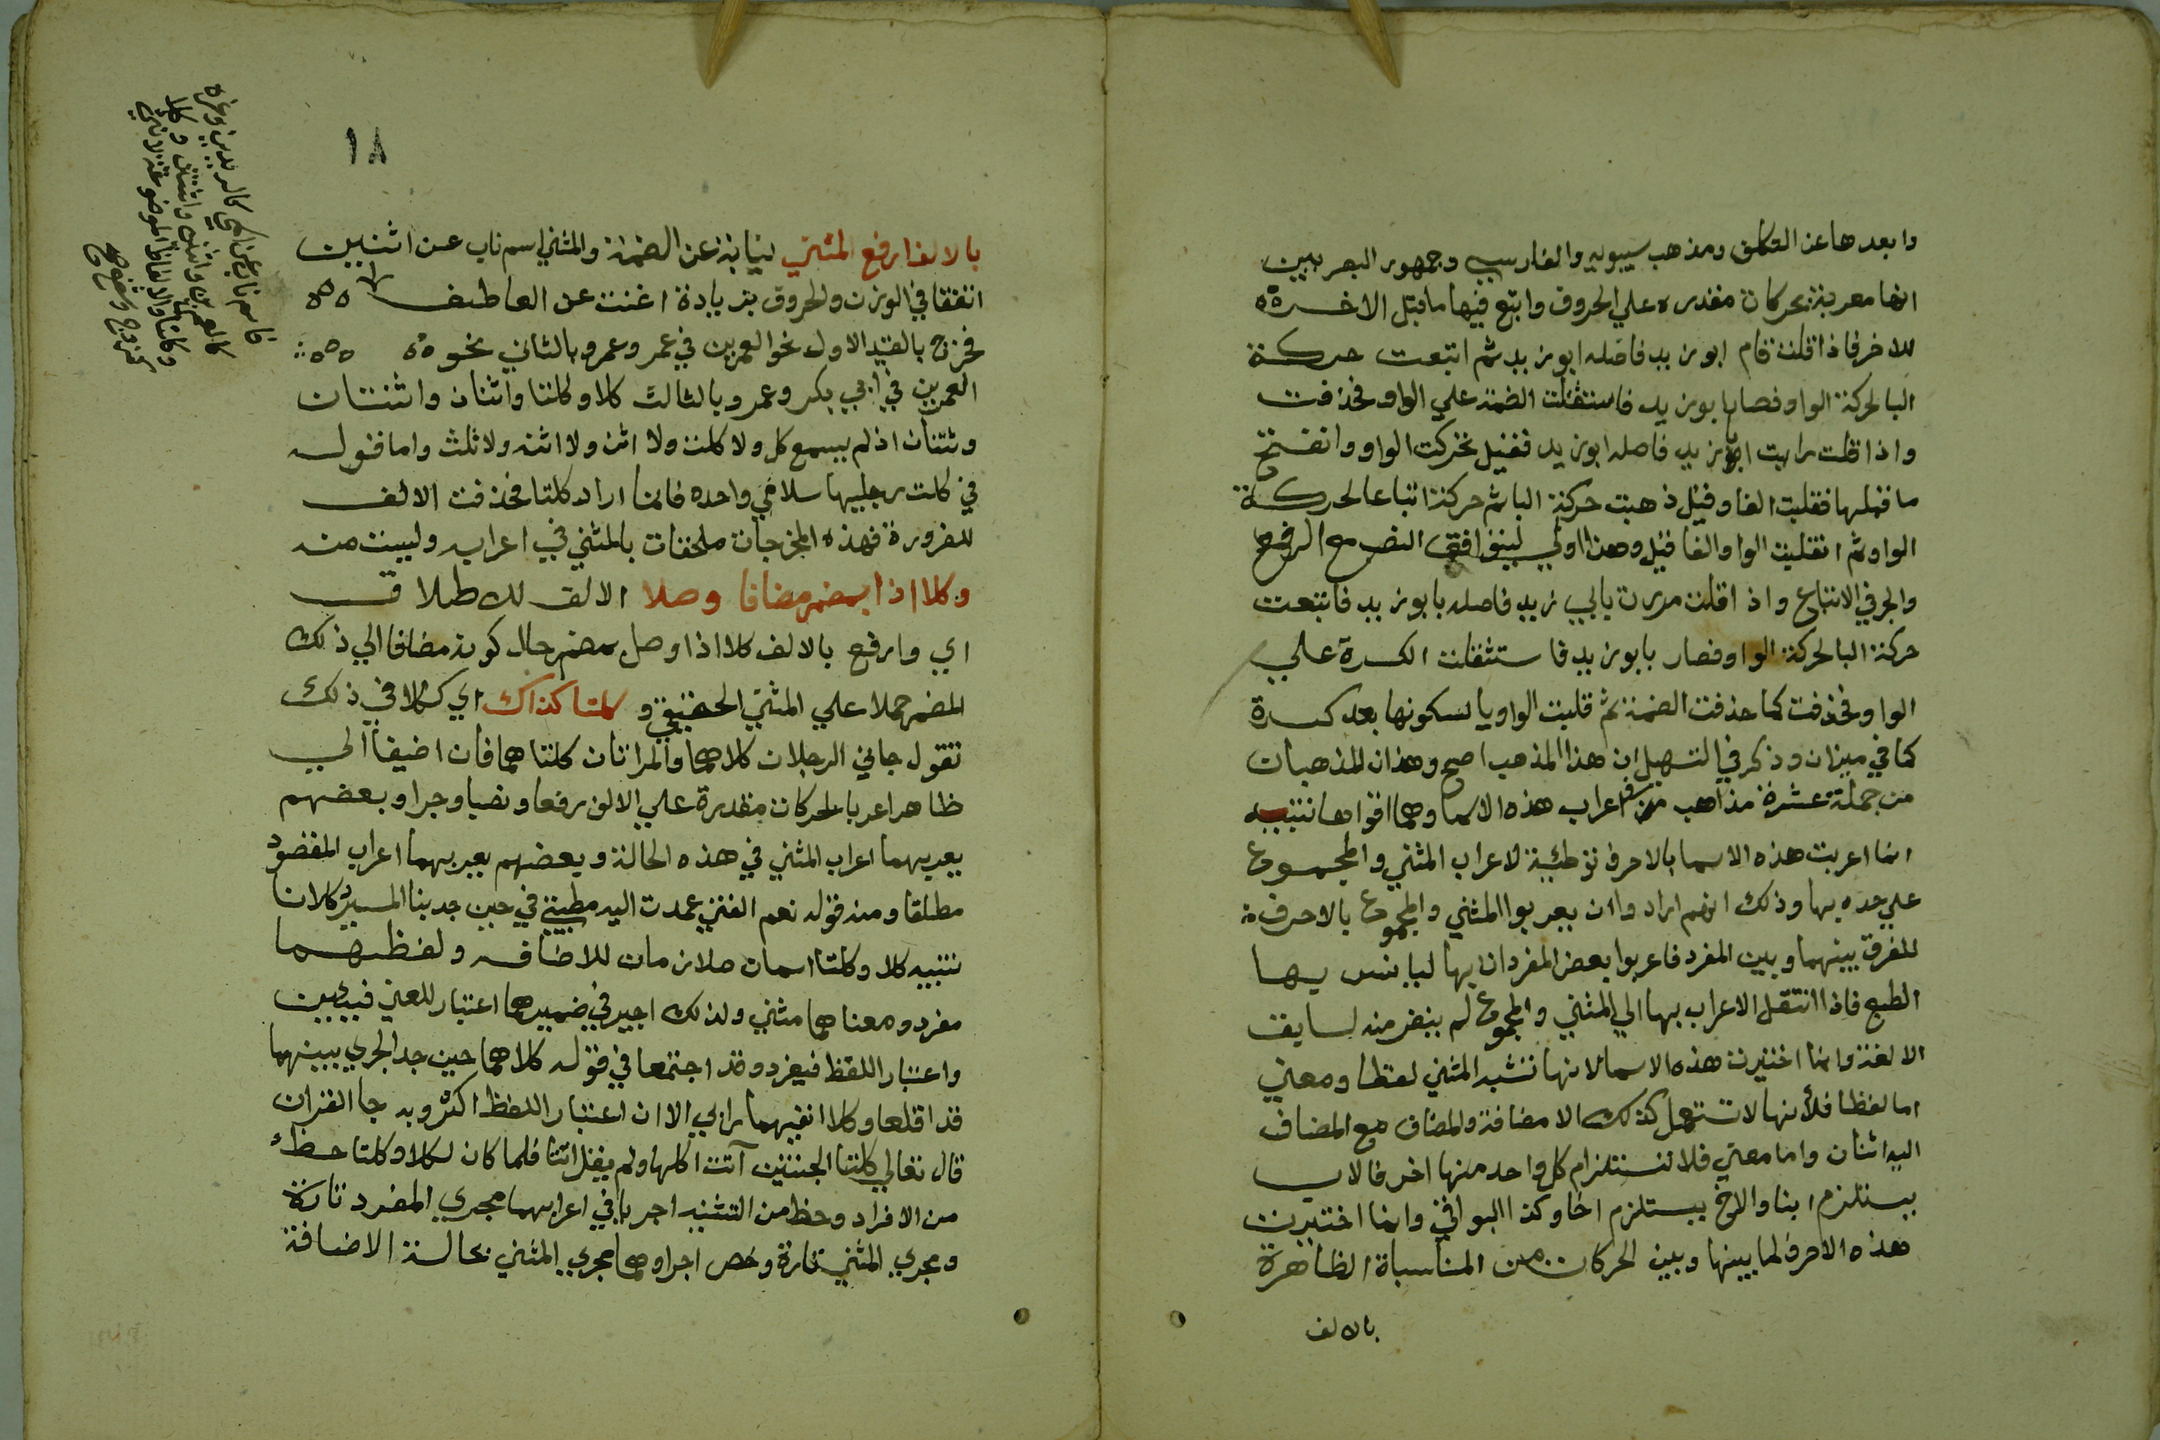 وابعدها عن التكلف ومذهب سيبويه والفارسي وجمهور البصريين
انها معربة بحركات مقدرة علي الحروف واتبع فيها ما قبل الاخر
للاخر فاذا قلت قام ابو زيد فاصله ابو زيد ثم اتبعت حركة
البا لحركة الواو فصار ابو زيد فاستثقلت الضمة علي الواو فحذفت
واذا قلت رايت ابا زيد فاصله ابو زيد فقيل تحركت الواو وانفتح
ما قبلها فقلبت الفا وقيل ذهبت حركة البا ثم حركة اتباعا لحركة
الواو ثم انقلبت الواو الفا قيل وهذا اولي ليتوافق النصب مع الرفع
والجر في الاتباع واذا قلت مررت بابي زيد فاصله بابو زيد فاتبعت
حركة البا لحركة الواو فصار بابو زيد فاستثقلت الكسرة علي
الواو فحذفت كما حذفت الضمة ثم قلبت الواو يا لسكونها بعد كسرة
كما في ميزان وذكر في التسهيل ان هذا المذهب اصح وهذان المذهبان
من جملة عشرة مذاهب في اعراب هذه الاسما وهما اقواها تنبيه
انما اعربت هذه الاسما بالاحرف توطئة لاعراب المثني والمجموع
علي حده بها وذلك انهم ارادوا ان يعربوا المثني والمجموع بالاحرف
للفرق بينهما وبين المفرد فاعربوا بعض المفردات بها ليانس بها
الطبع فاذا انتقل الاعراب بها الي المثني والمجموع لم ينفر منه لسابق
الالفة وانما اختيرت هذه الاسما لانها تشبه المثني لفظا ومعني
اما لفظا فلأنها لا تستعمل كذلك الا مضافة والمضاف مع المضاف
اليه اثنان واما معني فلاستلزام كل واحد منها اخر فالاب
يستلزم ابنا والاخ يستلزم اخا وكذا البواقي وانما اختيرت
هذه الاحرف لما بينها وبين الحركات من المناسباة الظاهرة
بالالف
١٨
بالالف ارفع المثني نيابة عن الضمة والمثني اسم ناب عن اثنين
اتفقا في الوزن والحروف بزيادة اغنت عن العاطف
فخرج بالقيد الاول نحو العمرين في عمر وعمرو وبالثاني نحو
العمرين في ابي بكر وعمر وبالثالث كلا وكلتا واثنان واثنتان
وثنتان اذ لم يسمع كل ولا كلت ولا اثن ولا اثنة ولا ثلث واما قوله
في كلت رجليها سلامي واحده فانما اراد كلتا فحذفت الالف
للضرورة فهذه المخرجات ملحقات بالمثني في اعرابه وليست منه
وكلا اذا بمضمر مضافا وصلا الالف للاطلاق
اي وارفع بالالف كلا اذا وصل بمضمر حال كونه مضافا الي ذلك
المضمر حملا علي المثني الحقيقي و كلتا كذاك اي ككلا في ذلك
تقول جاني الرجلان كلاهما والمراتان كلتاهما فان اضيفا الي
ظاهر اعربا بالحركات مقدرة علي الالف رفعا ونصبا وجرا وبعضهم
يعربهما اعراب المثني في هذه الحالة وبعضهم يعربهما اعراب المقصور
مطلقا ومنه قوله نعم الفتي عمدت اليه مطيتي في حين جد بنا المسير كلانا
تنبيه كلا وكلتا اسمان ملازمان للاضافه ولفظهما
مفرد ومعناهما مثني ولذلك اجيز في ضميرهما اعتبار المعني فيثني
واعتبار اللفظ فيفرد وقد اجتمعا في قوله كلاهما حين جد الجري بينهما
قد اقلعا وكلا انفيهما رابي الا ان اعتبار اللفظ اكثر وبه جا القران
قال تعالي كلتا الجنتين آتت اكلها ولم يقل اتتا فلما كان لكلا وكلتا حظ
من الافراد وحظ من التثنيه اجريا في اعرابهما مجري المفرد تارة
ومجري المثني تارة وخص اجراوهما مجري المثني بحالة الاضافة